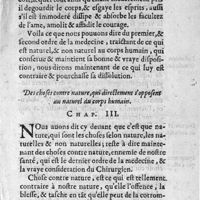 il degourdit le corps, & esgaye les esprits, aussi
s'il est immoderé dissipe & absorbe les facultez
de l'ame, amolit & assidit le courage.
Voila ce que nous pouvons dire du premier, &
second ordre de la medecine, traisdant de ce qui
est naturel, & non naturel au corps humain, qui
conserue & maintient sa bonne & vraye disposition,
nous dirons maintenant de ce qui luy est
contraire & pourchasse sa dissolution.
Des choses contre nature, qui directement s'opposent
au naturel du corps humain.
CHAP. III.
NOus auons dit cy deuant que c'est que nature,
qui sont les choses selon nature, les naturelles
& non naturelles; reste à dire maintenant
des choses contre nature, ennemie de nostre
santé, qui est le dernier ordre de la medecine, & à
la vraye consideration du Chirurgien.
Chose contre nature, est ce qui est tellement
contraire à nostre nature, qu'elle l'offence, la
blesse, & tasche en tant qu'elle peut de la corrom-